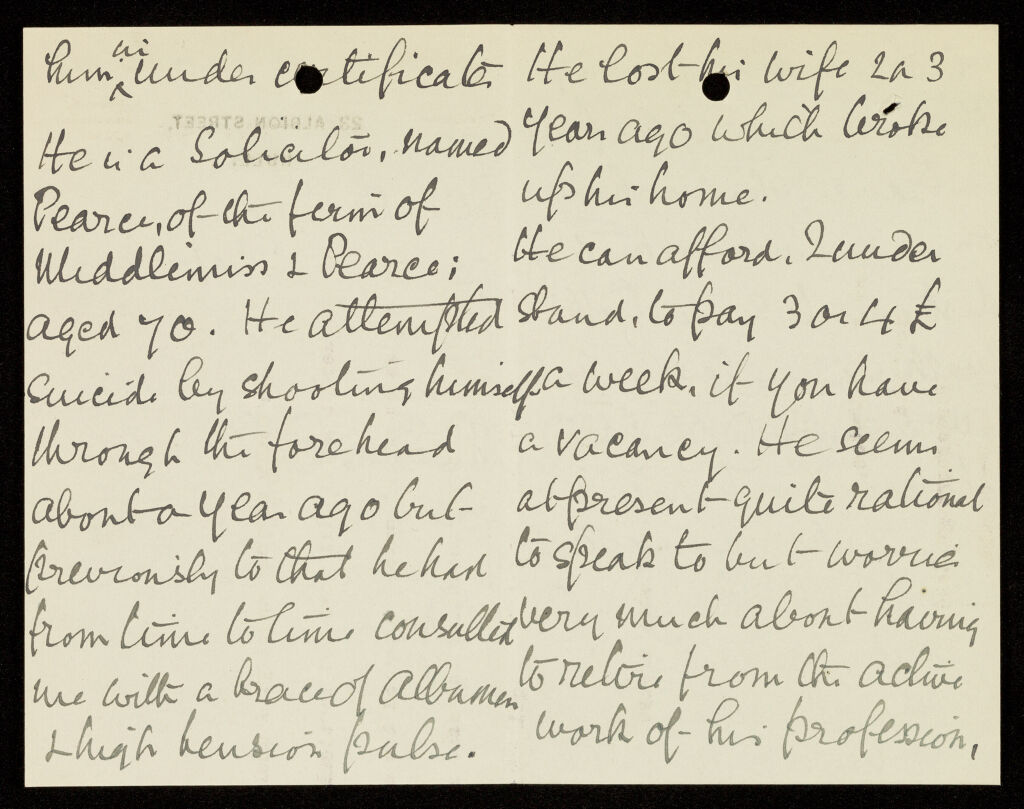 him in under certificate
He is a Solicitor, named
Pearce, of the firm of
Middlemiss & Pearce;
aged 70. He attempted
suicide by shooting himself
through the forehead
about a year ago but
previously to that he had
from time to time consulted
me with a trace of Albumen
& high tension pulse.
He lost his wife 2 or 3
years ago which broke
up his home.
He can afford, I under
stand, to pay 3 or 4 £
a week, if you have
a vacancy. He seems
at present quite rational
to speak to but worries
very much about having
to retire from the active
work of his profession,
22 ALBION STREET,